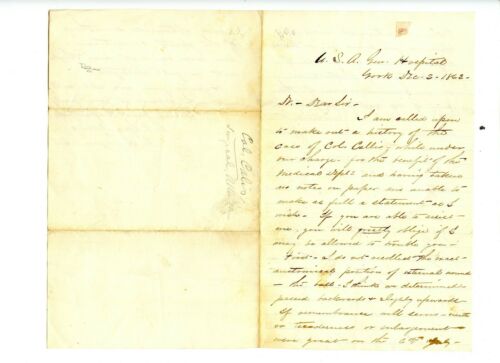 U.S.A. Gen. Hospital
York Dec. 2 - 1863 -
Dr. - Dear Sir -
I am called upon
to make out a history of the
case of Col. Callis, while under
our charge for the benefit of the
Medical Dept. and having taken
no notes on paper am unable to
make as full a statement as I
wish - If you are able to assist
me, you will greatly oblige if I
may be allowed to trouble you -
First - I do not recollect the exact
anatomical position of external wound
- the ball - I think we determined
passed backwards & slightly upwards
If remembrance will serve -
or tenderness or enlargement
were great on the
Col. Callis